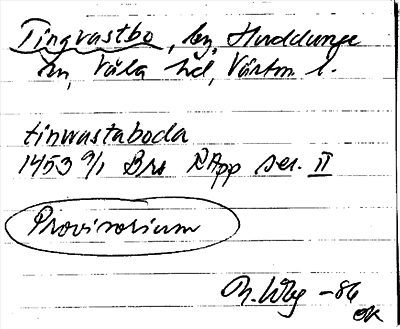 Tingvastbo, by, Huddunge
sn, Våla hd, Västm l.
tinwastaboda
1453 9/1 Brs RApp ser. II
Provisorium
-86
OK